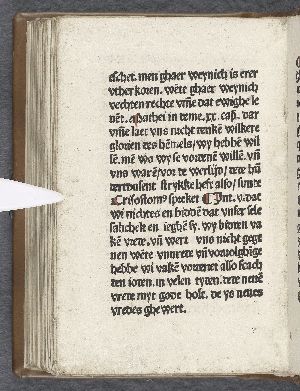 eschet. men ghaer weynich is erer
vther koren. wete ghaer weynich
vechten rechte vm̄e dat ewighe le
uēt. Mathei in teme. xx. cap. dar
vm̄e laet vns nicht denkē wilkere
glorien des hēmels/ wy hebbē wil
lē. mē wo wy se vordenē willē. vn̄
vns warē/ vor de
strykke hest also/ sunte
Crisostom⁹ spreket ¶ Int. v. dat
wi nichtes en biddē dat vnser sele
salicheit en ieghē sy. wy bidden va
kē vrede. vn̄ wert vns nicht gege
nen wēte vnurede vn̄ voruolghige
hebbe wi vakē vordenet also scach
den ioden. in velen tyden. dede
vrede myt gode holt. de ys
vredes ghewert.